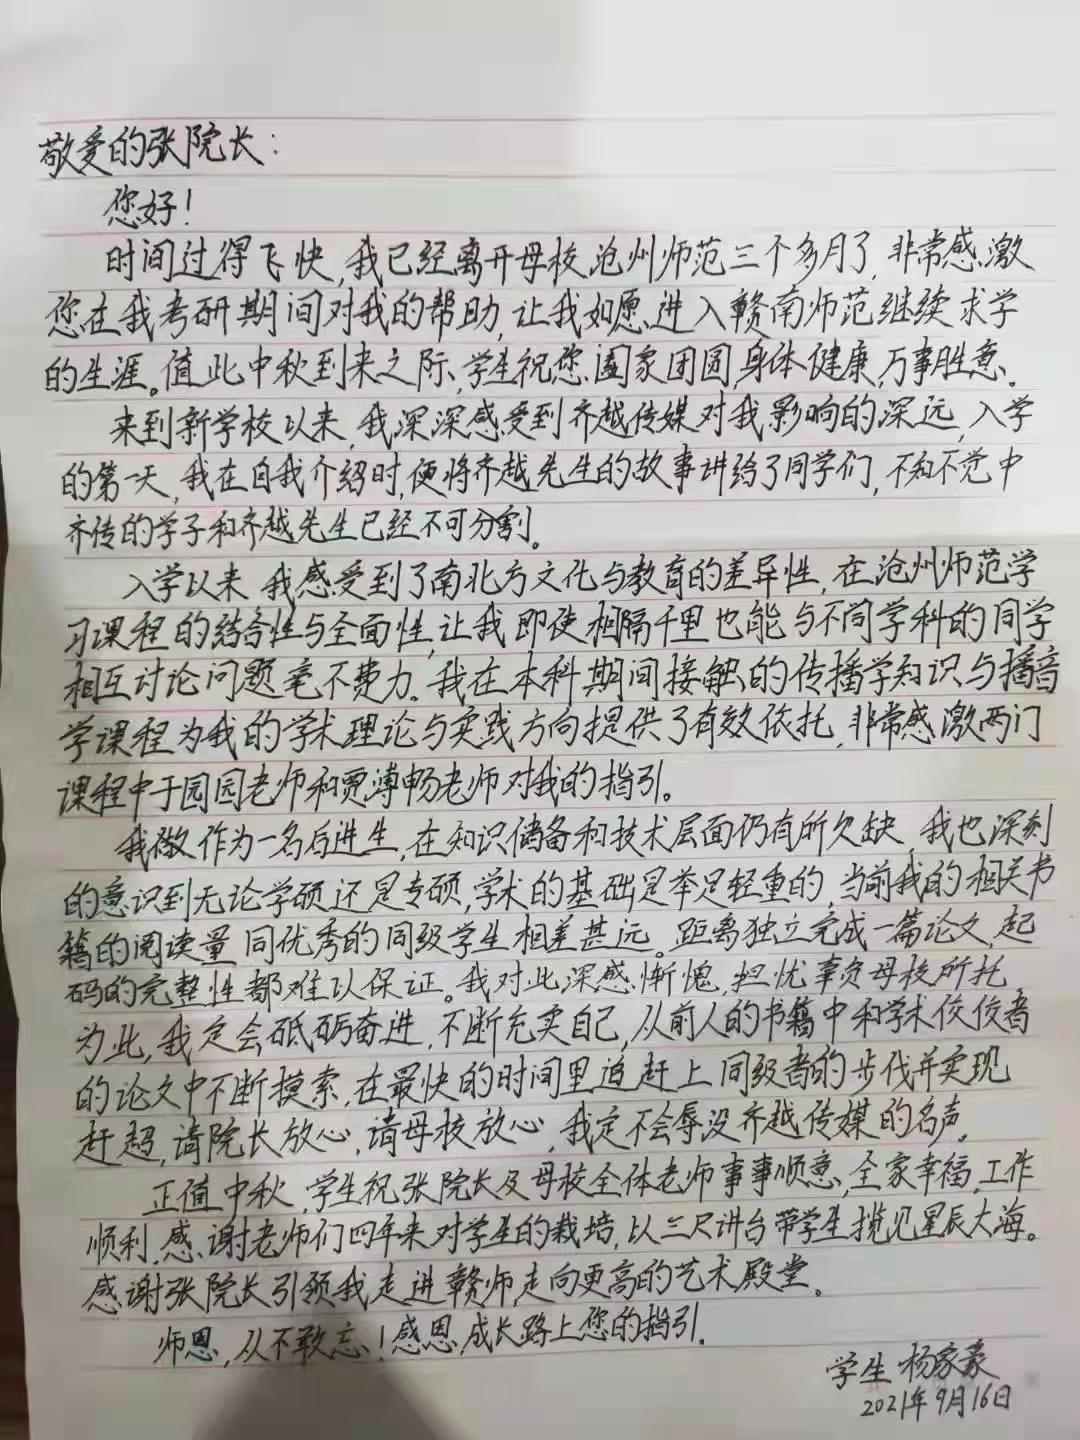 敬爱的张院长：
您好！
时间过得飞快，我已经离开母校沧州师范三个多月了，非常感激
您在我考研期间对我的帮助，让我如愿进入赣南师范继续求学
的生涯。值此中秋到来之际，学生祝您阖家团圆，身体健康，万事胜意。
来到新学校以来，我深深感受到齐越传媒对我影响的深远，入学
的第一天，我在自我介绍时，便将齐越先生的故事讲给了同学们，不知不觉中
齐传的学子和齐越先生已经不可分割。
入学以来，我感受到了南北方文化与教育的差异性，在沧州师范学
习课程的结合性与全面性，让我即使相隔千里也能与不同学科的同学
相互讨论问题毫不费力。我在本科期间接触的传播学知识与播音
学课程为我的学术理论与实践方向提供了有效依托，非常感激两门
课程中于园园老师和贾溥畅老师对我的指引。
我做作为一名后进生，在知识储备和技术层面仍有所欠缺，我也深刻
的意识到无论学硕还是专硕，学术的基础是举足轻重的，当前我的相关书
籍的阅读量同优秀的同级学生相差甚远。距离独立完成一篇论文，起
码的完整性都难以保证。我对此深感惭愧，担忧辜负母校所托，
为此，我定会砥砺奋进，不断充实自己，从前人的书籍中和学术佼佼者
的论文中不断摸索，在最快的时间里追赶上同级者的步伐并实现
赶超，请院长放心，请母校放心，我定不会辱没齐越传媒的名声。
正值中秋，学生祝张院长及母校全体老师事事顺意，全家幸福，工作
顺利，感谢老师们四年来对学生的栽培，以三尺讲台带学生揽见星辰大海。
感谢张院长引领我走进赣师，走向更高的艺术殿堂。
师恩，从不敢忘！感恩，成长路上您的指引。
学生 杨家豪
2021年9月16日